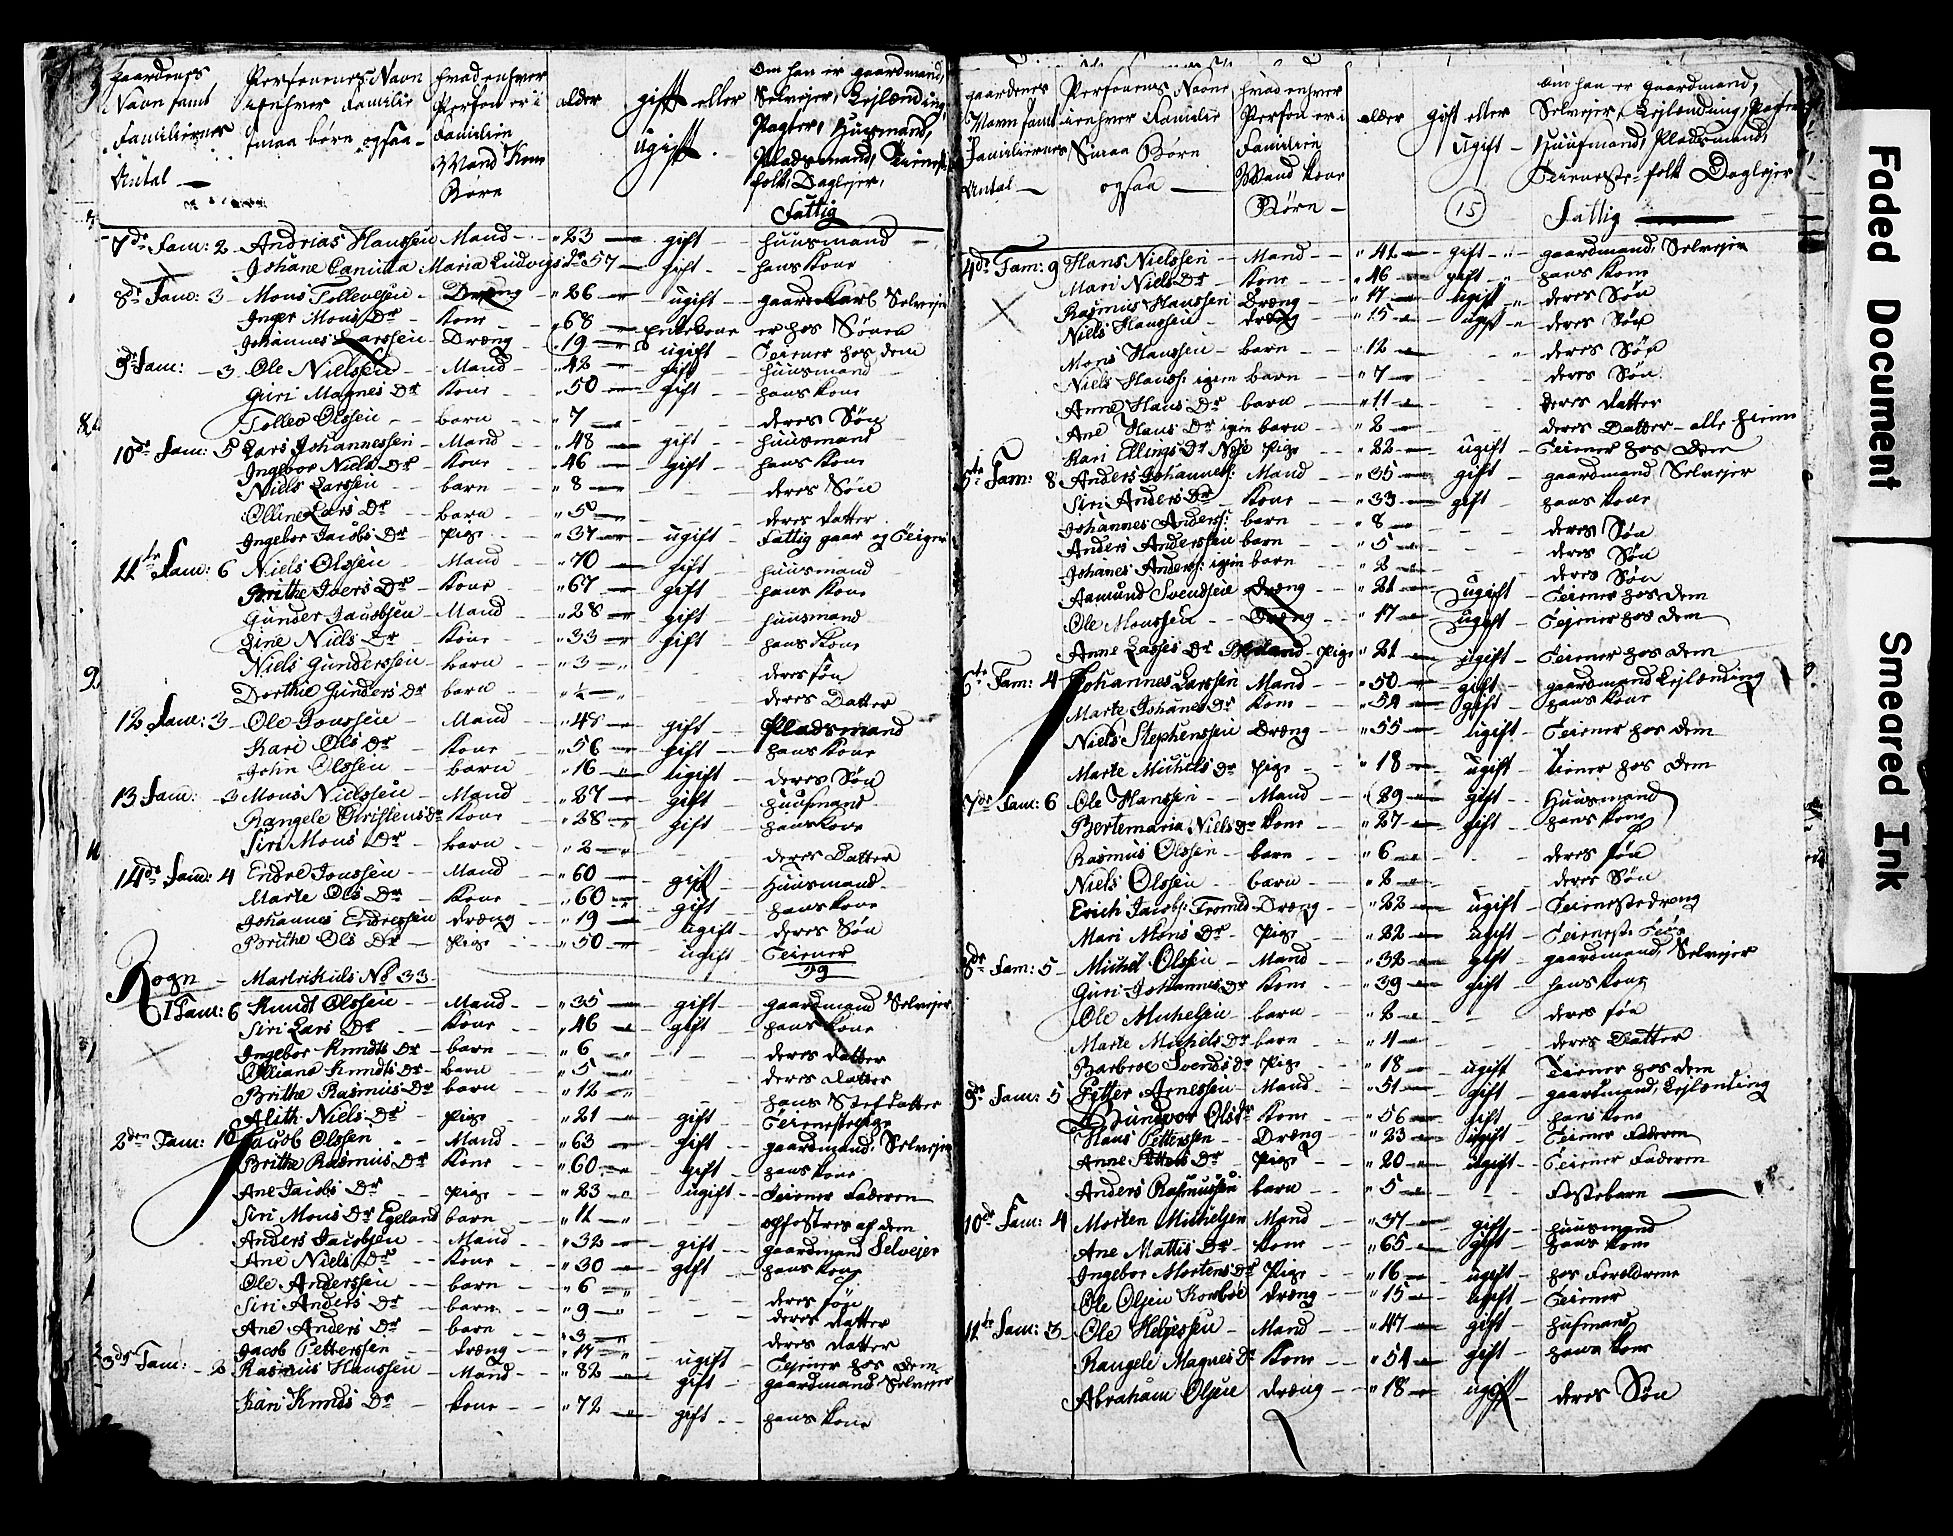 gaardenes Navn samt Familiernes Antal —
Personernes Navn i enhver Familie smaa børn ogsaa —
hvad enhver Person er i Familien Mand Kone Børn
alder
gift eller ugift
Om han er gaardmand, Selvejer, Lejlænding, Pagter, Huusmand, Pladsmand, Tieneste folk, Daglejer, Fattig
7de Fam: 2 Andrias Hanssen Mand 23 gift huusmand
Johane Camilla Maria Ludvigs Dr 57 gift hans Kone
8de Fam: 3 Mons Tollevsen Dræng 26 ugift gaard Karl Selvejer
Inger Mons Dr Kone 68 enkekone er hos Sønen
Johannes Larssen Dræng 19 ugift Teiener hos dem
9de Fam: 3 Ole Nielssen Mand 42 gift huusmand
Guri Magnes Dr Kone 50 gift hans Kone
Tollev Olssen barn 7 deres Søn
10de Fam: 5 Lars Johannessen Mand 48 gift huusmand
Ingebor Niels Dr Kone 46 gift hans Kone
Niels Larssen barn 8 deres Søn
Olline Lars Dr barn 5 deres datter
Ingebor Jacobs Dr pige 37 ugift Fattig gaar og Teiger
11te Fam: 6 Niels Olssen Mand 70 gift huusmand
Brithe Ivers Dr Kone 67 gift hans Kone
Gunder Jacobsen Mand 28 gift huusmand
Sine Niels Dr Kone 33 gift hans Kone
Niels Gunderssen barn 3 deres søn
Dorthie Gunders Dr barn ½ deres Datter
12 Fam: 3 Ole Jonssen Mand 48 gift Pladsmand
Kari Ols Dr Kone 56 gift hans Kone
John Olssen barn 16 ugift deres Søn
13 Fam: 3 Mons Nielssen Mand 27 gift huusmand
Rangele Christens Dr Kone 28 gift hans Kone
Siri Mons Dr barn 2 deres Datter
14de Fam: 4 Endre Jonssen Mand 60 gift Huusmand
Marte Ols Dr Kone 60 gift hans Kone
Johannes Endressen dræng 19 ugift deres Søn
Brithe Ols Dr pige 50 ugift Teiener
59
Rogn Martrikuls No 33
1 Fam: 6 Knudt Olssen Mand 35 gift gaardmand Selvejer
Siri Lars Dr Kone 46 gift hans Kone
Ingebor Knudts Dr barn 6 deres datter
Olliana Knudts Dr barn 5 deres datter
Brithe Rasmus Dr barn 12 hans Stefdatter
Alith Niels Dr pige 21 gift Teienestepige
2den Fam: 10 Jacob Olssen Mand 63 gift gaardmand, Selvejer
Brithe Rasmus Dr Kone 60 gift hans Kone
Ane Jacobs Dr pige 23 ugift Teiener Faderen
Siri Mons Dr Egeland barn 11 opfostres af dem
Anders Jacobsen Mand 32 gift gaardmand Selvejer
Ane Niels Dr Kone 30 gift hans Kone
Ole Anderssen barn 6 deres søn
Siri Anders Dr barn 9 deres datter
Ane Anders Dr barn 3 deres datter
Jacob Petterssen dræng 17 ugift Tejener hos dem
3de Fam: 2 Rasmus Hanssen Mand 82 gift gaardmand Selvejer
Kari Knuds Dr Kone 72 gift hans Kone
gaardenes Navn samt Familiernes Antal —
Personens Navne i enhver Familie Smaa Børn ogsaa —
hvad enhver Person er i Familien Mand Kone Børn —
alder
gift eller Ugift —
15
om han er gaardmand, Selvejer, Lejlænding, Pagter, Huusmand, Pladsmand, Teieneste-folk Daglejer Fattig
4de Fam: 9 Hans Nielssen Mand 41 gift gaardmand, Selvejer
Mari Niels Dr Kone 46 gift hans Kone
Rasmus Hanssen Dræng 17 ugift deres Søn
Niels Hanssen dræng 15 ugift deres Søn
Mons Hanssen barn 12 deres Søn
Niels Hanss: igien barn 7 deres Søn
Anne Hans Dr barn 11 deres datter
Ane Hans Dr igien barn 2 deres Datter alle hiem
Kari Ellings Dr Nese pige 22 ugift Teiener hos Dem
5te Fam: 8 Anders Johanness: Mand 35 gift gaardmand Selvejer
Siri Anders Dr Kone 33 gift hans Kone
Johannes Anderss: barn 8 deres Søn
Anders Anderssen barn 5 deres Søn
Johanes Anderss: igien barn 2 deres Søn
Aamund Svendsen dræng 21 ugift Teiener hos dem
Ole Monssen Dræng 17 ugift Tejener hos dem
Anne Lasses Dr pige 21 ugift Teiener hos dem
6te Fam: 4 Johannes Larssen Mand 50 gift gaardmand Lejlænding
Marte Johanes Dr Kone 54 gift hans Kone
Niels Stephenssen Dræng 55 ugift Teiener hos dem
Marte Michels Dr pige 18 ugift tiener hos Dem
7de Fam: 6 Ole Hanssen Mand 29 gift Huusmand
Bertemaria Niels Dr Kone 27 gift hans Kone
Rasmus Olssen barn 6 deres søn
Niels Olssen barn 2 deres Søn
Erich Jacobs: Tromld Dræng 22 ugift Teienestedreng
Mari Mons Dr pige 22 ugift
8de Fam: 5 Michel Olssen Mand 32 gift gaardmand, Selvejer
Guri Johannes Dr Kone 39 gift hans Kone
Ole Michelsen barn 2 deres søn
Marte Michels Dr barn 4 deres Datter
Barbroe Svends Dr pige 18 ugift Teiener hos dem
9de Fam: 5 Petter Arnessen Mand 51 gift gaardmand, Lejlænding
Gundvor Ols Dr Kone 56 gift hans Kone
Hans Petterssen Dræng 23 ugift Teiener Faderen
Anne Petters Dr pige 20 ugift Teiener Faderen
Anders Rasmussen barn 5 Fostebarn
10de Fam: 4 Morten Michelsen Mand 37 gift huusmand
Ane Mattis Dr Kone 65 gift hans Kone
Ingebor Mortens Dr Pige 16 ugift hos Foreldrene
Ole Olsen dræng 15 ugift Teiener
11te Fam: 3 Ole Helgessen Mand 47 gift husmand
Rangele Magnes Dr Kone 54 gift hans Kone
Abraham Olsen dræng 18 ugift deres Søn
Faded Document
Smeared Ink